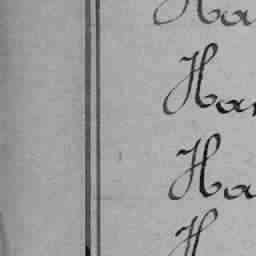 Ha
Han
Ha
H